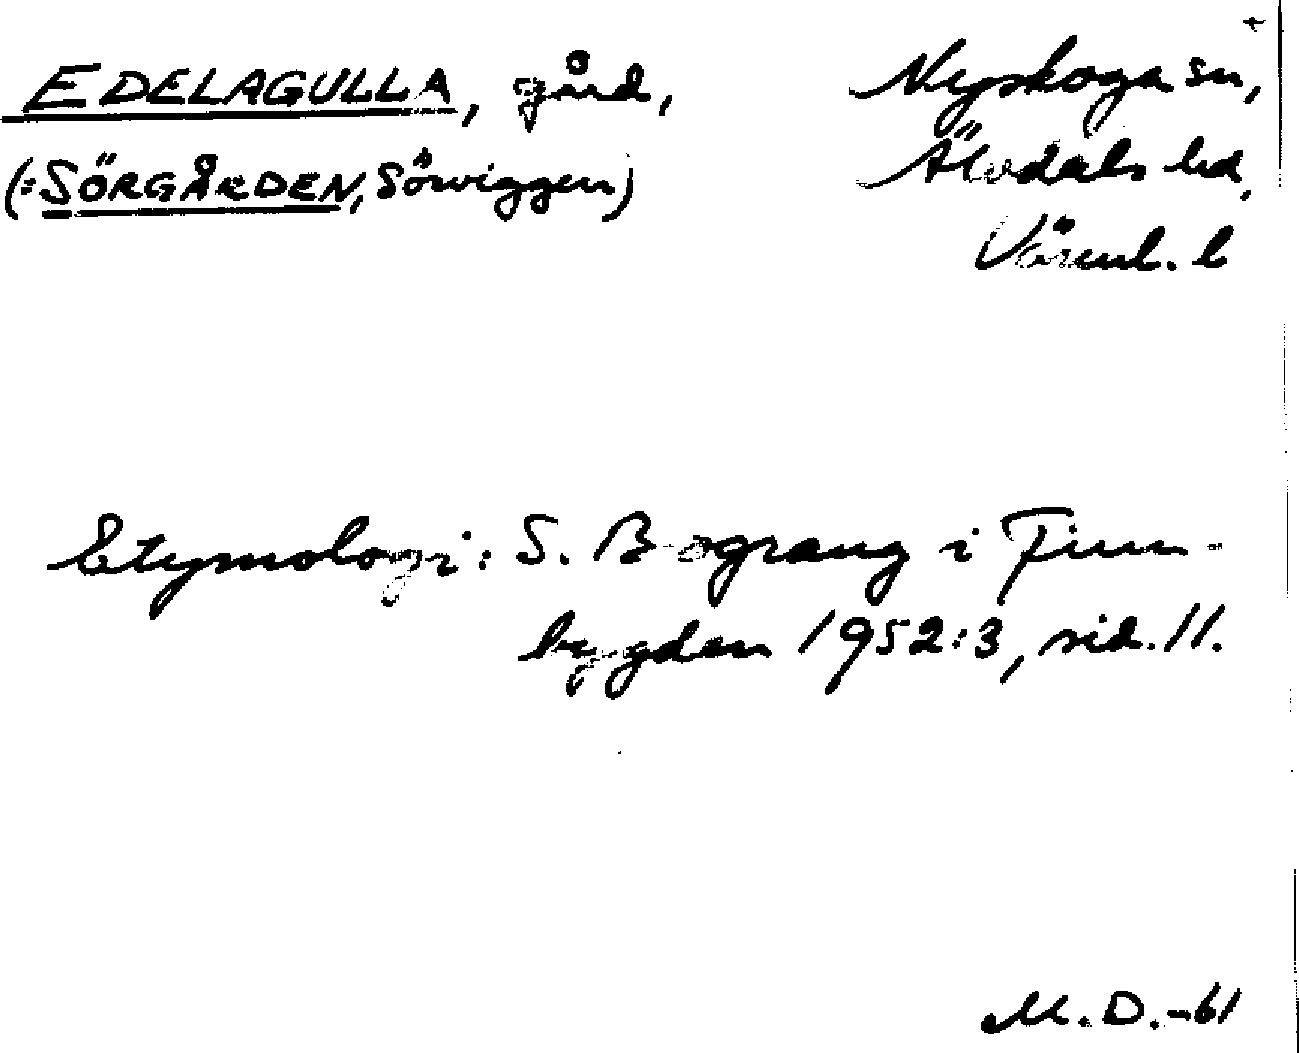 EDELAGULLA, gård,
(= SÖRGÅRDEN, Sörviggen)
Nyskoga sn,
Älvdals hd,
Värml. l
Etymologi: S. Bograng i Finn-
bygden 1952:3, sid. 11.
M. D. -61